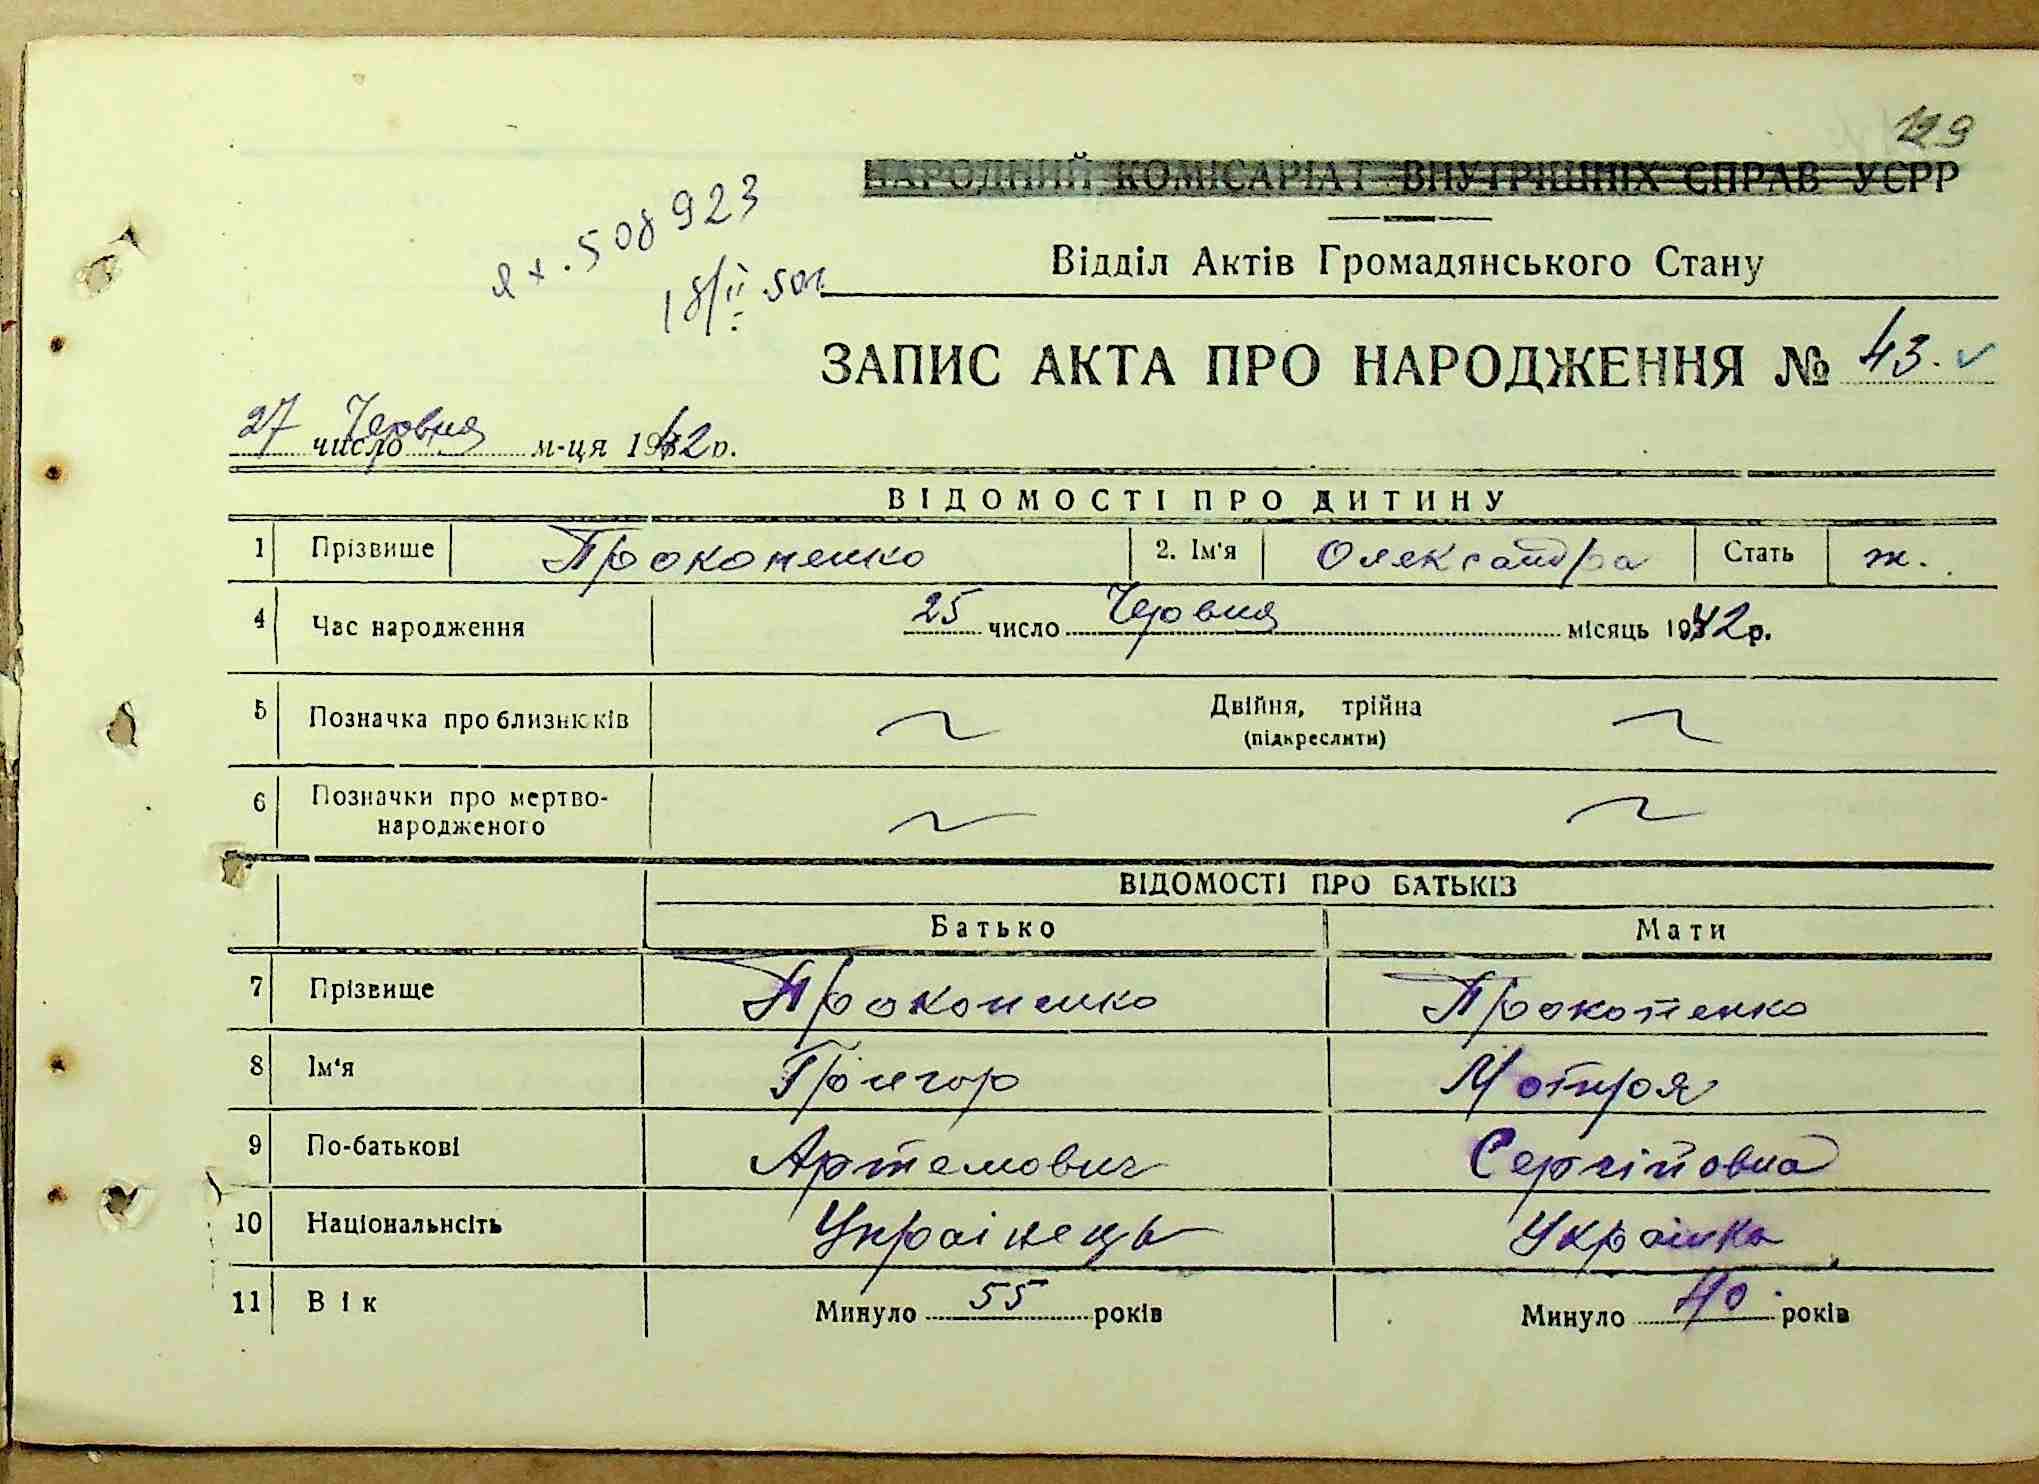 129
НАРОДНИЙ КОМІСАРІАТ ВНУТРІШНІХ СПРАВ УСРР
ях. 508923
18/II 50г.
Відділ Актів Громадянського Стану
ЗАПИС АКТА ПРО НАРОДЖЕННЯ № 43.
27 число Червня м-ця 1942 р.
ВІДОМОСТІ ПРО ДИТИНУ
1 Прізвище Прокопенко 2. Ім'я Олександра Стать ж.
4 Час народження 25 число Червня місяць 1942 р.
5 Позначка про близнюків Двійня, трійна
(підкреслити)
6 Позначки про мертво-
народженого
ВІДОМОСТІ ПРО БАТЬКІВ
Батько Мати
7 Прізвище Прокопенко Прокопенко
8 Ім'я Григор Мотря
9 По-батькові Артемович Сергійовна
10 Національнсіть Українець Українка
11 Вік Минуло 55 років Минуло 40 років